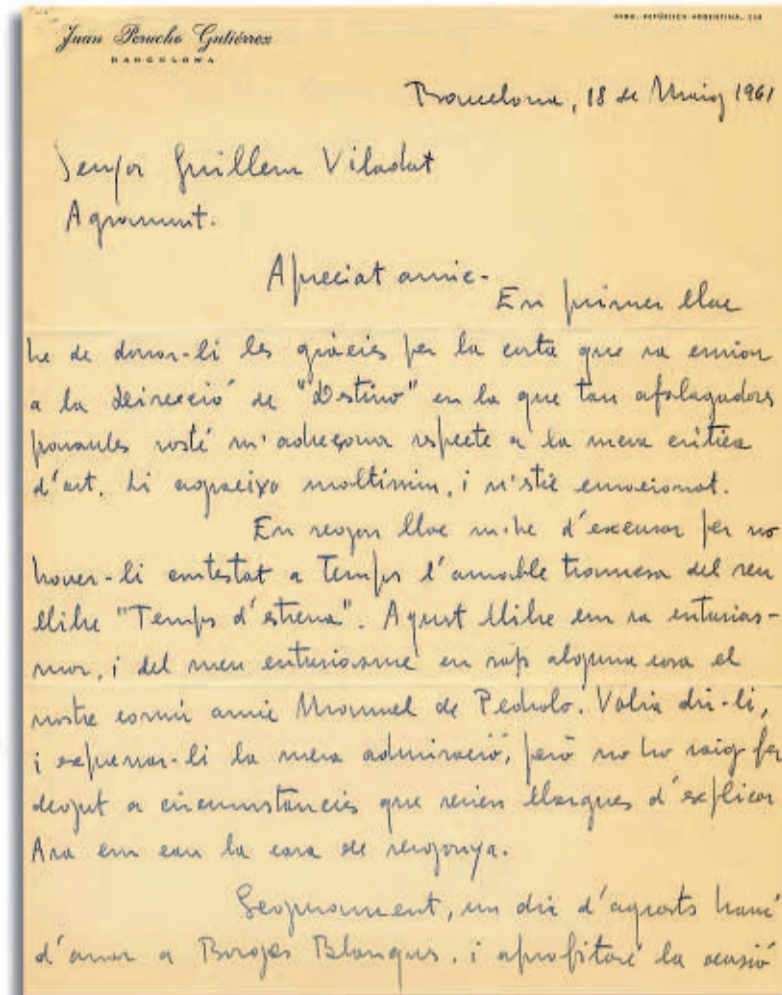 Juan Perucho Gutiérrez
BARCELONA
AVDA. REPÚBLICA ARGENTINA, 248
Barcelona, 18 de Maig 1961
Senyor Guillem Viladot
Agramunt.
Apreciat amic-
En primer lloc
he de donar-li les gràcies per la carta que va enviar
a la direcció de "Destino" en la que tan afalagadors
paraules vosté m'adreçava respecte a la meva crítica
d'art. Li agraeixo moltíssim, i n'stic emocionat.
En segon lloc m'he d'excusar per no
haver-li contestat a temps l'amable tramesa del seu
llibre "Temps d'estrena". Aquest llibre em va entusias-
mar, i del meu entusiasme en sap alguna cosa el
nostre comú amic Manuel de Pedrolo. Volia dir-li,
i expressar-li la meva admiració, però no ho vaig fer
degut a circumstancies que serien llargues d'explicar
Ara em cau la cara de vergonya.
Segurament, un dia d'aquests hauré
d'anar a Borges Blanques. i aprofitaré la ocasió